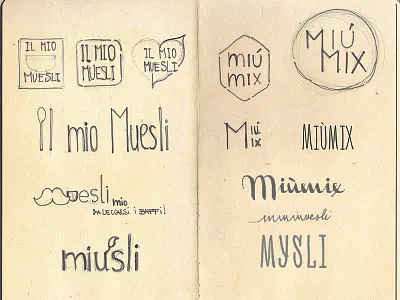 IL MIO
MUESLI
IL MIO
MUESLI
IL MIO
MUESLI
il mio Muesli
muesli mio
DA LECCARSI i BAFFI!
miusli
miú
mix
MIÚ
MIX
Miú
ix
MIÙMIX
Miùmix
MYSLI